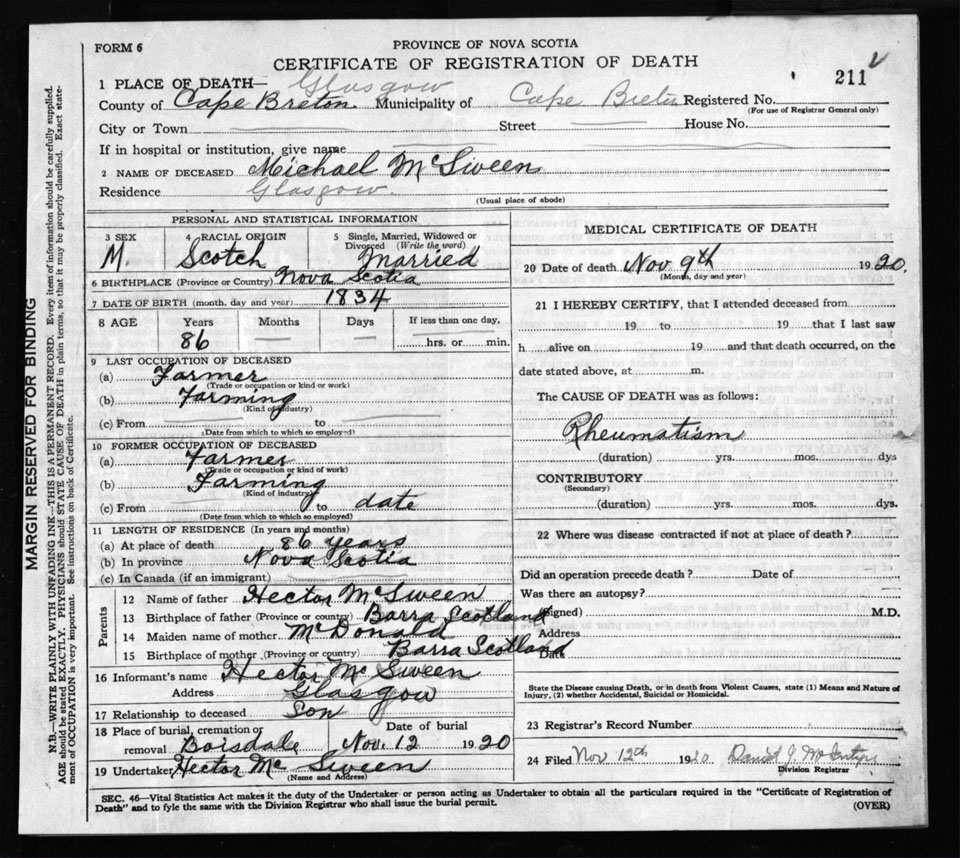 FORM 6
PROVINCE OF NOVA SCOTIA
CERTIFICATE OF REGISTRATION OF DEATH
211
1 PLACE OF DEATH— Glasgow
County of Cape Breton Municipality of Cape Breton Registered No.
(For use of Registrar General only)
City or Town Street House No.
If in hospital or institution, give name
2 NAME OF DECEASED Michael McSween
Residence Glasgow.
(Usual place of abode)
PERSONAL AND STATISTICAL INFORMATION
3 SEX 4 RACIAL ORIGIN 5 Single, Married, Widowed or
Divorced (Write the word)
M. Scotch Married
6 BIRTHPLACE (Province or Country) Nova Scotia
7 DATE OF BIRTH (month, day and year) 1834
8 AGE Years Months Days If less than one day,
86 hrs. or min.
9 LAST OCCUPATION OF DECEASED
(a) Farmer
(Trade or occupation or kind or work)
(b) Farming
(Kind of industry)
(c) From to
(Date from which to which so employed)
10 FORMER OCCUPATION OF DECEASED
(a) Farmer
(Trade or occupation or kind of work)
(b) Farming
(Kind of industry)
(c) From to date
(Date from which to which so employed)
11 LENGTH OF RESIDENCE (In years and months)
(a) At place of death 86 years
(b) In province Nova Scotia
(c) In Canada (if an immigrant)
Parents
12 Name of father Hector McSween
13 Birthplace of father (Province or country) Barra Scotland
14 Maiden name of mother McDonald
15 Birthplace of mother (Province or country) Barra Scotland
16 Informant's name Hector McSween
Address Glasgow
17 Relationship to deceased Son
18 Place of burial, cremation or Date of burial
removal Boisdale Nov. 12 1920
19 Undertaker Hector Mc Sween
(Name and Address)
MEDICAL CERTIFICATE OF DEATH
20 Date of death Nov 9th 1920.
(Month, day and year)
21 I HEREBY CERTIFY, that I attended deceased from
19 to 19 that I last saw
h alive on 19 and that death occurred, on the
date stated above, at m.
The CAUSE OF DEATH was as follows:
Rheumatism
(duration) yrs. mos. dys
CONTRIBUTORY
(Secondary)
(duration) yrs. mos. dys.
22 Where was disease contracted if not at place of death?
Did an operation precede death? Date of
Was there an autopsy?
(Signed) M.D.
Address
Date
State the Disease causing Death, or in death from Violent Causes, state (1) Means and Nature of
Injury, (2) whether Accidental, Suicidal or Homicidal.
23 Registrar's Record Number
24 Filed Nov 12th 1920 Daniel J. McIntyre
Division Registrar
SEC. 46—Vital Statistics Act makes it the duty of the Undertaker or person acting as Undertaker to obtain all the particulars required in the "Certificate of Registration of
Death" and to fyle the same with the Division Registrar who shall issue the burial permit. (OVER)
MARGIN RESERVED FOR BINDING
N.B.—WRITE PLAINLY WITH UNFADING INK—THIS IS A PERMANENT RECORD. Every item of information should be carefully supplied.
AGE should be stated EXACTLY. PHYSICIANS should STATE CAUSE OF DEATH in plain terms, so that it may be properly classified. Exact state-
ment of OCCUPATION is very important. See instructions on back of Certificate.